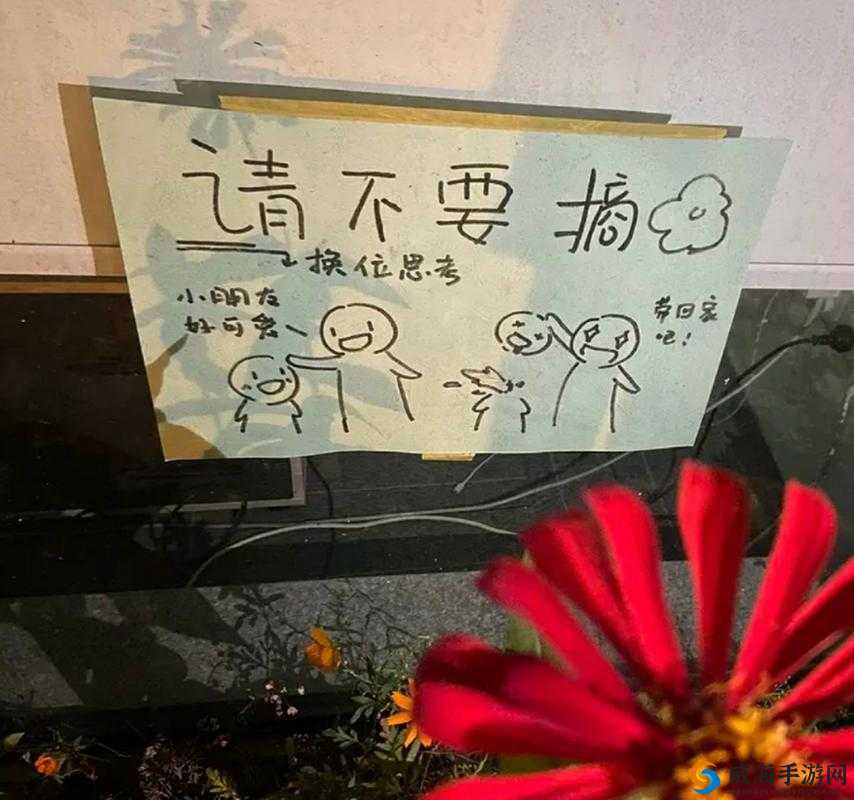 请不要摘
换位思考
小朋友
好可爱
带回家
吧！
手游网